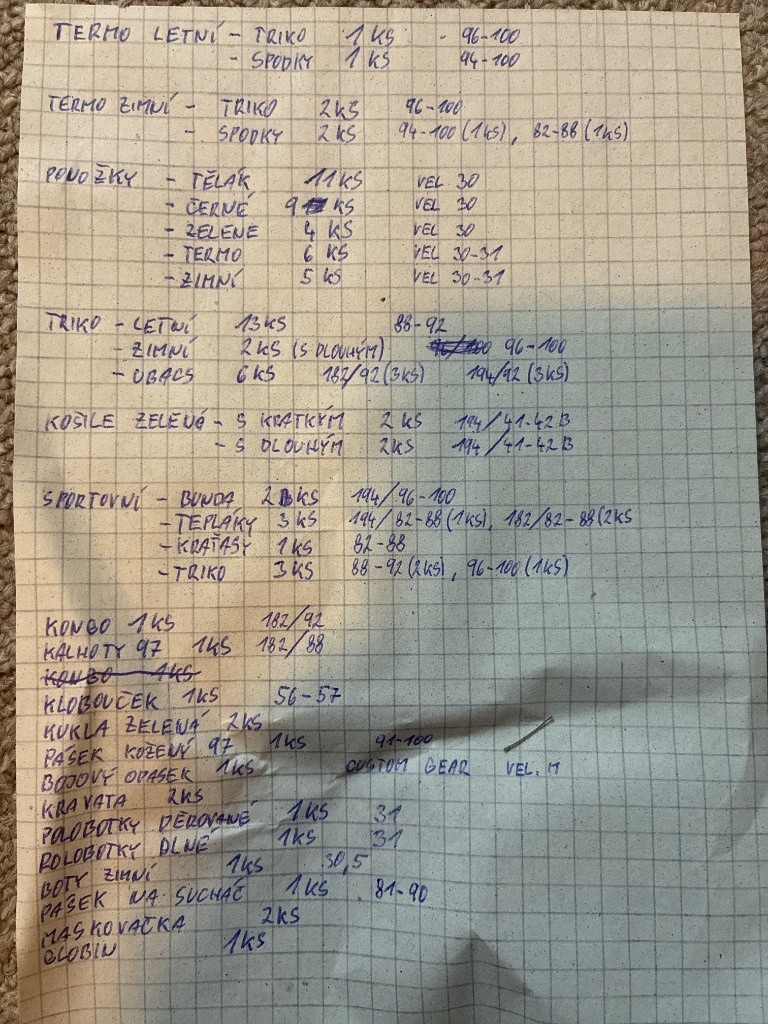 TERMO LETNÍ - TRIKO 1KS 96-100
- SPODKY 1KS 94-100
TERMO ZIMNÍ - TRIKO 2KS 96-100
- SPODKY 2KS 94-100 (1KS), 82-88 (1KS)
PONOŽKY - TĚLÁK 11KS VEL 30
- ČERNÉ 9 KS VEL 30
- ZELENÉ 4 KS VEL 30
- TERMO 6 KS VEL 30-31
- ZIMNÍ 5 KS VEL 30-31
TRIKO - LETNÍ 13KS 88-92
- ZIMNÍ 2KS (S DLOUHÝM) 96-100
- UBACS 6KS 182/92 (3KS) 194/92 (3KS)
KOŠILE ZELENÁ - S KRÁTKÝM 2 KS 194/41-42B
- S DLOUHÝM 2KS 194/41-42B
SPORTOVNÍ - BUNDA 2 KS 194/96-100
- TEPLÁKY 3 KS 194/82-88 (1KS), 182/82-88 (2KS
- KRAŤASY 1KS 82-88
- TRIKO 3KS 88-92 (2KS), 96-100 (1KS)
KONBO 1KS 182/92
KALHOTY 97 1KS 182/88
KONBO 1KS
KLOBOUČEK 1KS 56-57
KUKLA ZELENÁ 2KS
PÁSEK KOŽENÝ 97 1KS 91-100
BOJOVÝ OPASEK 1KS CUSTOM GEAR VEL. M
KRAVATA 2KS
POLOBOTKY DĚROVANÉ 1KS 31
POLOBOTKY PLNÉ 1KS 31
BOTY ZIMNÍ 1KS 30,5
PÁSEK NA SUCHÁČ 1KS 81-90
MASKOVAČKA 2KS
GLOBIN 1KS